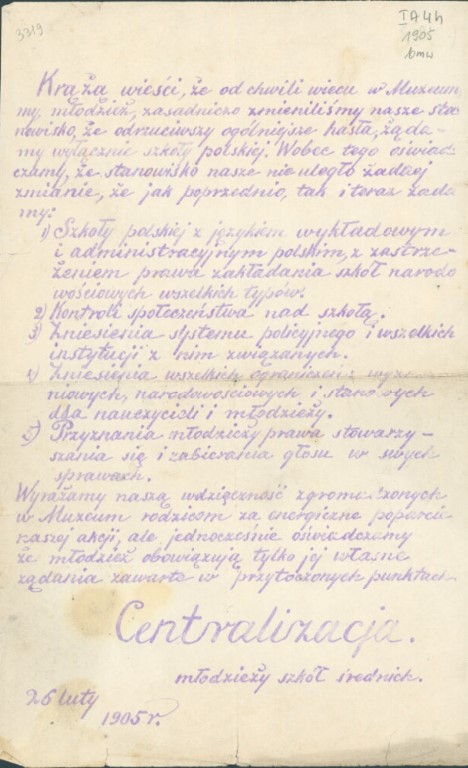 3319
IA4h
1905
bmw
Krążą wieści, że od chwili wiecu w Muzeum
my, młodzież, zasadniczo zmieniliśmy nasze sta
nowisko, że odrzuciwszy ogólniejsze hasła, żąda-
my wyłącznie szkoły polskiej. Wobec tego oświad
czamy, że stanowisko nasze nie uległo żadnej
zmianie, że jak poprzednio, tak i teraz żąda
my:
1) Szkoły polskiej z językiem wykładowym
i administracyjnym polskim, z zastrze-
żeniem prawa zakładania szkół narodo
wościowych wszelkich typów.
2) Kontroli społeczeństwa nad szkołą.
3) Zniesienia systemu policyjnego i wszelkich
instytucji z nim związanych.
4) Zniesienia wszelkich ograniczeń wyzna
niowych, narodowościowych i stanowych
dla nauczycieli i młodzieży.
5) Przyznania młodzieży prawa stowarzy-
szania się i zabierania głosu w swych
sprawach.
Wyrażamy naszą wdzięczność zgromadzonych
w Muzeum rodzicom za energiczne poparcie
naszej akcji, ale jednocześnie oświadczamy
że młodzież obowiązują tylko jej własne
żądania zawarte w przytoczonych punktach.
Centralizacja.
młodzieży szkół średnich.
26 luty
1905 r.